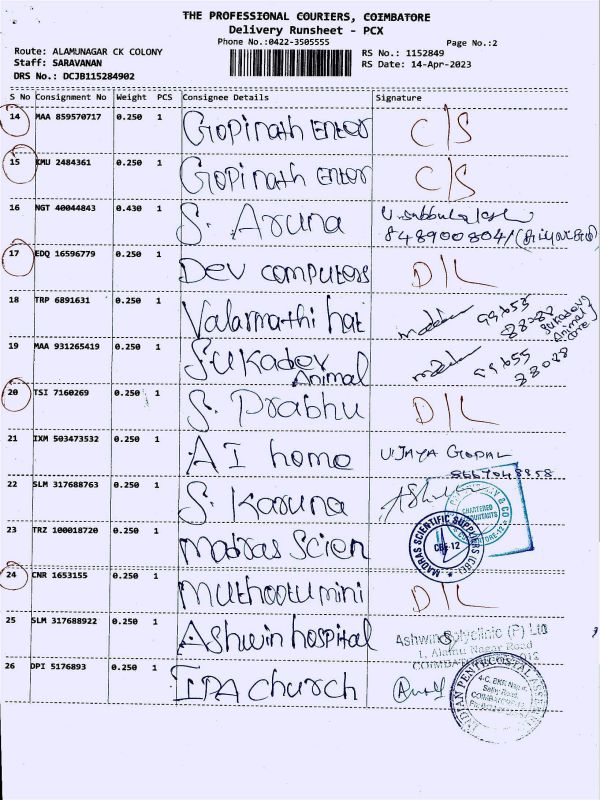 THE PROFESSIONAL COURIERS, COIMBATORE
Delivery Runsheet - PCX
Phone No.:0422-3505555
Page No.:2
Route: ALAMUNAGAR CK COLONY
Staff: SARAVANAN
DRS No.: DCJB115284902
RS No.: 1152849
RS Date: 14-Apr-2023
S No Consignment No Weight PCS Consignee Details Signature
14 MAA 859570717 0.250 1 Gopinath Enter C/S
15 KMU 2484361 0.250 1 Gopinath Enter C/S
16 NGT 40044843 0.430 1 S. Aruna
17 EDQ 16596779 0.250 1 Dev computers D/L
18 TRP 6891631 0.250 1 Valarmathi hat 99655
88028
Sukadev
Animal
Care
19 MAA 931265419 0.250 1 Sukadev
Animal 99655
88028
20 TSI 7160269 0.250 1 S. Prabhu D/L
21 IXM 503473532 0.250 1 AI home VIJAYA GOPAL
22 SLM 317688763 0.250 1 S. Karuna
& CO
CHARTERED
ACCOUNTANTS
COIMBATORE-12
23 TRZ 100018720 0.250 1 Madras Scien
MADRAS SCIENTIFIC SUPPLIERS (CBE)
CBE-12
24 CNR 1653155 0.250 1 Muthootu mini D/L
25 SLM 317688922 0.250 1 Ashwin hospital
Ashwin Polyclinic (P) Ltd
1, Alamu Nagar Road
26 DPI 5176893 0.250 1 IPA church